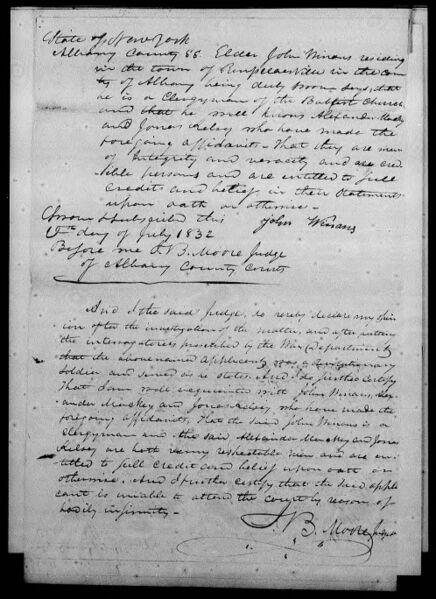 State of New York
Albany County SS. Elder John Winans residing
in the town of Rensselaerville in the coun
ty of Albany being duly sworn says, that
he is a Clergyman of the Baptist Church
and that he well knows Alexander Mackey
and Jonas Kelsey who have made the
foregoing affidavits - That they are men
of Integrity and veracity and are cred
ible persons and are entitled to full
credits and belief in their statements
upon oath or otherwise -
Sworn & subscribed this John Winans
day of July 1832
Before me B. Moore Judge
of Albany County Courts
And I the said Judge, do hereby declare my opin
ion after the investigation of the matter, and after putting
the interrogatories prescribed by the War Department
that the above named applicant was a revolutionary
soldier and served as he states. And I do further certify
That I am well acquainted with John Winans, Alex-
ander Mackey and Jonas Kelsey, who have made the
foregoing affidavits, that the said John Winans is a
Clergyman and the said Alexander Mackey and Jonas
Kelsey are both very respectable men and are en-
titled to full credit and belief upon oath or
otherwise. And I further certify that the said appli
cant is unable to attend the court by reason of
bodily infirmity -
B. Moore Judge